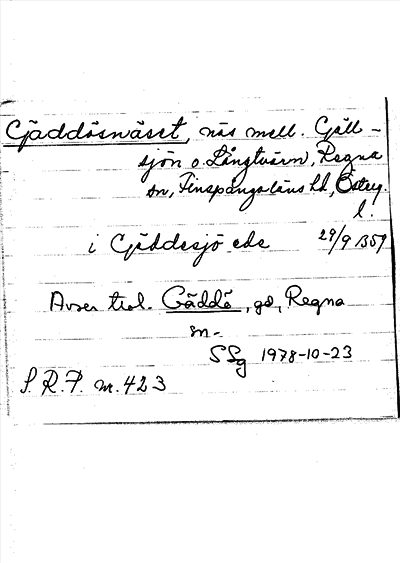 Gäddösnäset, näs mell. Gäll-
sjön o. Långtvärn, Regna
sn, Finspångaläns hd, Österg.
l.
i Gäddesjö ede 29/9 1357
Avser trol. Gäddö, gd, Regna
sn.
SSg 1978-10-23
S.R.P. nr. 423